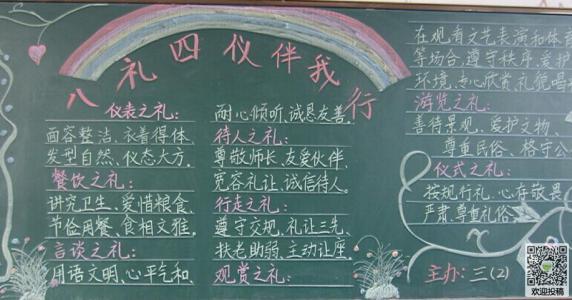 八礼四仪伴我行
仪表之礼：
面容整洁、衣着得体、
发型自然、仪态大方。
餐饮之礼：
讲究卫生、爱惜粮食、
节俭用餐、食相文雅。
言谈之礼：
用语文明、心平气和、
耐心倾听、诚恳友善。
待人之礼：
尊敬师长、友爱伙伴、
宽容礼让、诚信待人。
行走之礼：
遵守交规、礼让三先、
扶老助弱、主动让座。
观赏之礼：
在观看文艺表演和体育
等场合，遵守秩序、爱护
环境、专心欣赏、礼貌喝
游览之礼：
善待景观、爱护文物、
尊重民俗、恪守公
仪式之礼：
按规行礼、心存敬畏
严肃、尊重礼俗
主办：三(2)
欢迎投稿